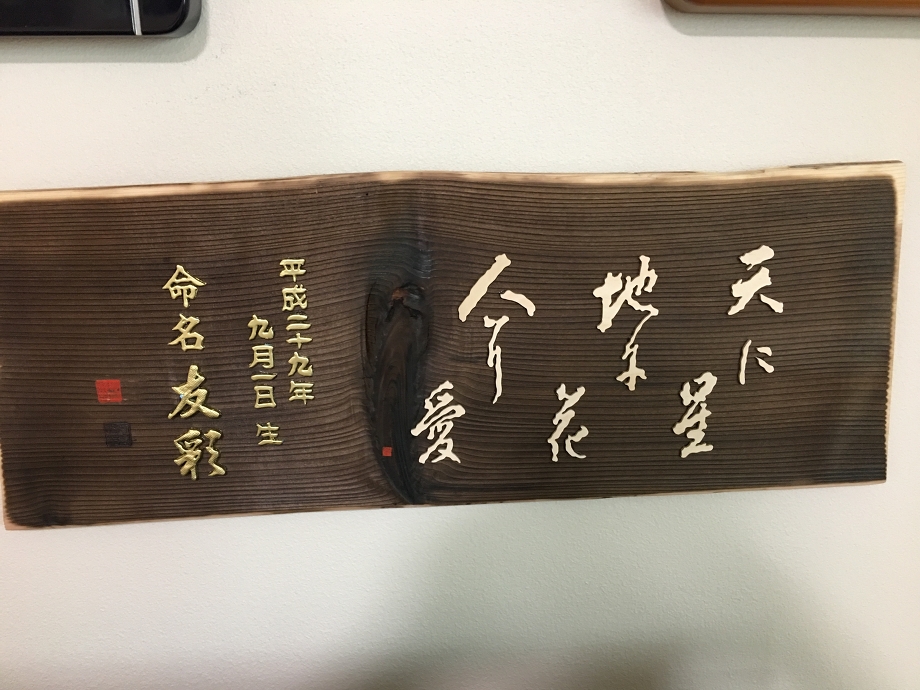 天に
星
地に
花
人に
愛
平成二十九年
九月一日 生
命名 友彩